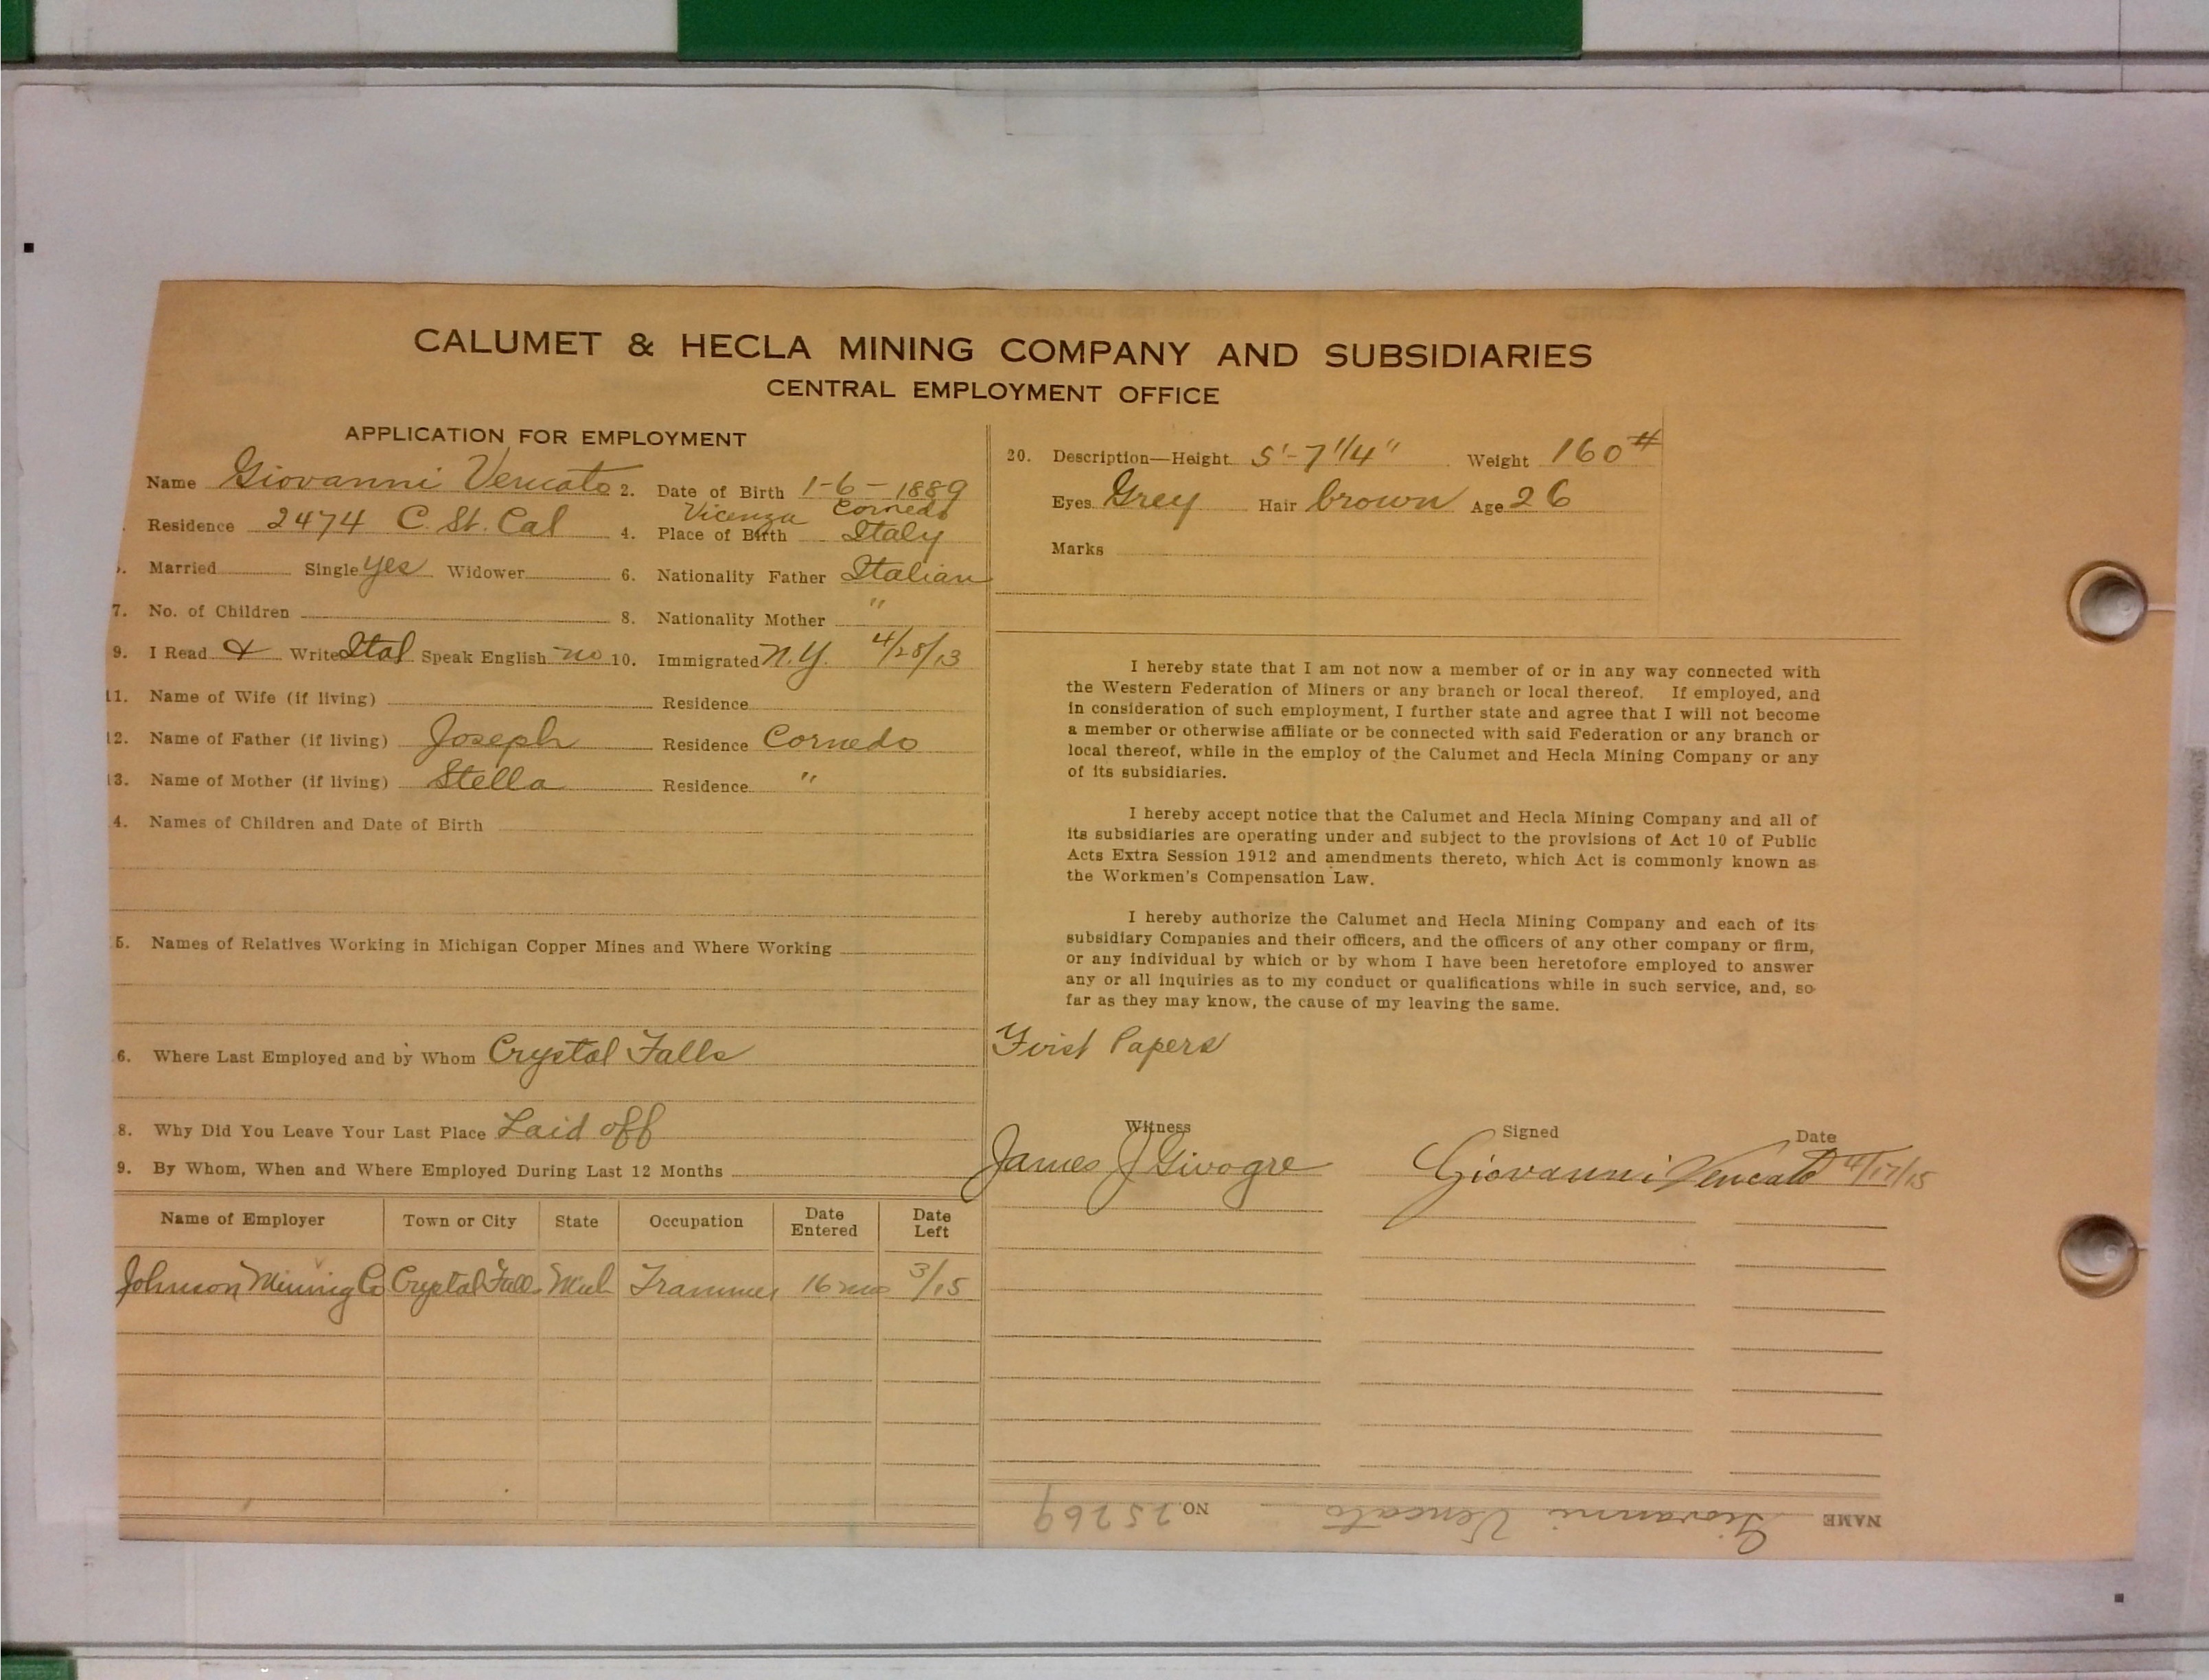 CALUMET & HECLA MINING COMPANY AND SUBSIDIARIES
CENTRAL EMPLOYMENT OFFICE
APPLICATION FOR EMPLOYMENT
Name Giovanni Vencato 2. Date of Birth 1-6-1889
Vicenza Cornedo
Residence 2474 C. St. Cal 4. Place of Birth Italy
Married Single yes Widower 6. Nationality Father Italian
7. No. of Children 8. Nationality Mother "
9. I Read & Write Ital Speak English no 10. Immigrated N.Y. 4/28/13
11. Name of Wife (if living) Residence
12. Name of Father (if living) Joseph Residence Cornedo
13. Name of Mother (if living) Stella Residence "
4. Names of Children and Date of Birth
5. Names of Relatives Working in Michigan Copper Mines and Where Working
6. Where Last Employed and by Whom Crystal Falls
8. Why Did You Leave Your Last Place Laid off
9. By Whom, When and Where Employed During Last 12 Months
Name of Employer Town or City State Occupation Date Entered Date Left
Johnson Mining Co Crystal Falls Mich Trammer 16 mo 3/15
20. Description—Height 5'-7 1/4" Weight 160#
Eyes Grey Hair brown Age 26
Marks
I hereby state that I am not now a member of or in any way connected with
the Western Federation of Miners or any branch or local thereof. If employed, and
in consideration of such employment, I further state and agree that I will not become
a member or otherwise affiliate or be connected with said Federation or any branch or
local thereof, while in the employ of the Calumet and Hecla Mining Company or any
of its subsidiaries.
I hereby accept notice that the Calumet and Hecla Mining Company and all of
its subsidiaries are operating under and subject to the provisions of Act 10 of Public
Acts Extra Session 1912 and amendments thereto, which Act is commonly known as
the Workmen's Compensation Law.
I hereby authorize the Calumet and Hecla Mining Company and each of its
subsidiary Companies and their officers, and the officers of any other company or firm,
or any individual by which or by whom I have been heretofore employed to answer
any or all inquiries as to my conduct or qualifications while in such service, and, so
far as they may know, the cause of my leaving the same.
First Papers
Witness Signed Date
James J Givogre Giovanni Vencato 4/17/15
NAME Giovanni Vencato NO. 25269